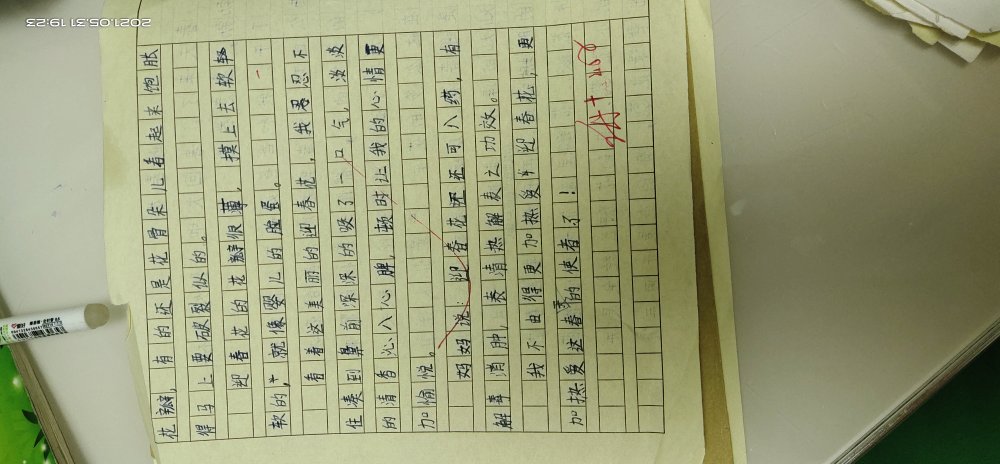 花瓣，有的还是花骨朵儿看起来饱胀
得马上要破裂似的。
迎春花的花瓣很薄，摸上去软软
软的，就像婴儿的脸蛋。
看着这美丽的迎春花，我忍不
住凑到鼻前深深的吸了一口气，淡淡
的清香沁入心脾，顿时让我的心情更
加愉悦。
妈妈说：迎春花还可入药，有
解毒消肿，清热解表之功效。
我不由得更加热爱迎春花，更
加热爱这春的使者了！
2021.05.31 19:23